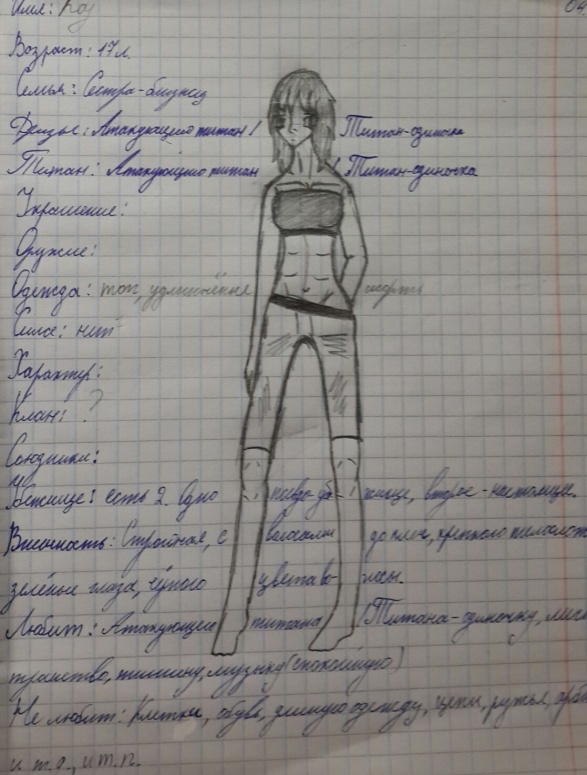 Имя: Роу 04
Возраст: 17 л.
Семья: Сестра-близнец
Друзья: Атакующий титан / Титан-одиночка
Титан: Атакующий титан / Титан-одиночка
Украшение:
Оружие:
Одежда: топ, удлинённые шорты
Сила: нет
Характер:
Клан: ?
Союзники:
Убежище: есть 2. Одно псевдо-убежище, второе - настоящее.
Внешность: Стройная, с волосами до плеч, крепкого телосло
зелёные глаза, чёрного цвета во- лосы.
Любит: Атакующего титана / Титана-одиночку,
тишину, музыку (спокойную)
Не любит: Клетки, обувь, длинную одежду, цепи, ружья,
и т.д., и т.п.